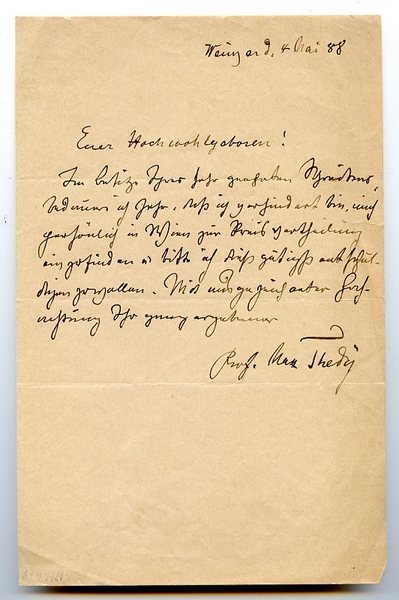 Weimar d. 4 Mai 88
Euer Hochwohlgeboren!
Im Besitz Ihres sehr geehrten Schreibens,
bedaure ich sehr, daß ich verhindert bin, mich
persönlich in Wien zur Preisvertheilung
einzufinden u bitte ich dieß gütigst entschul-
digen zu wollen. Mit ausgezeichneter Hoch-
achtung Ihr ganz ergebener
Prof. Max Thedy